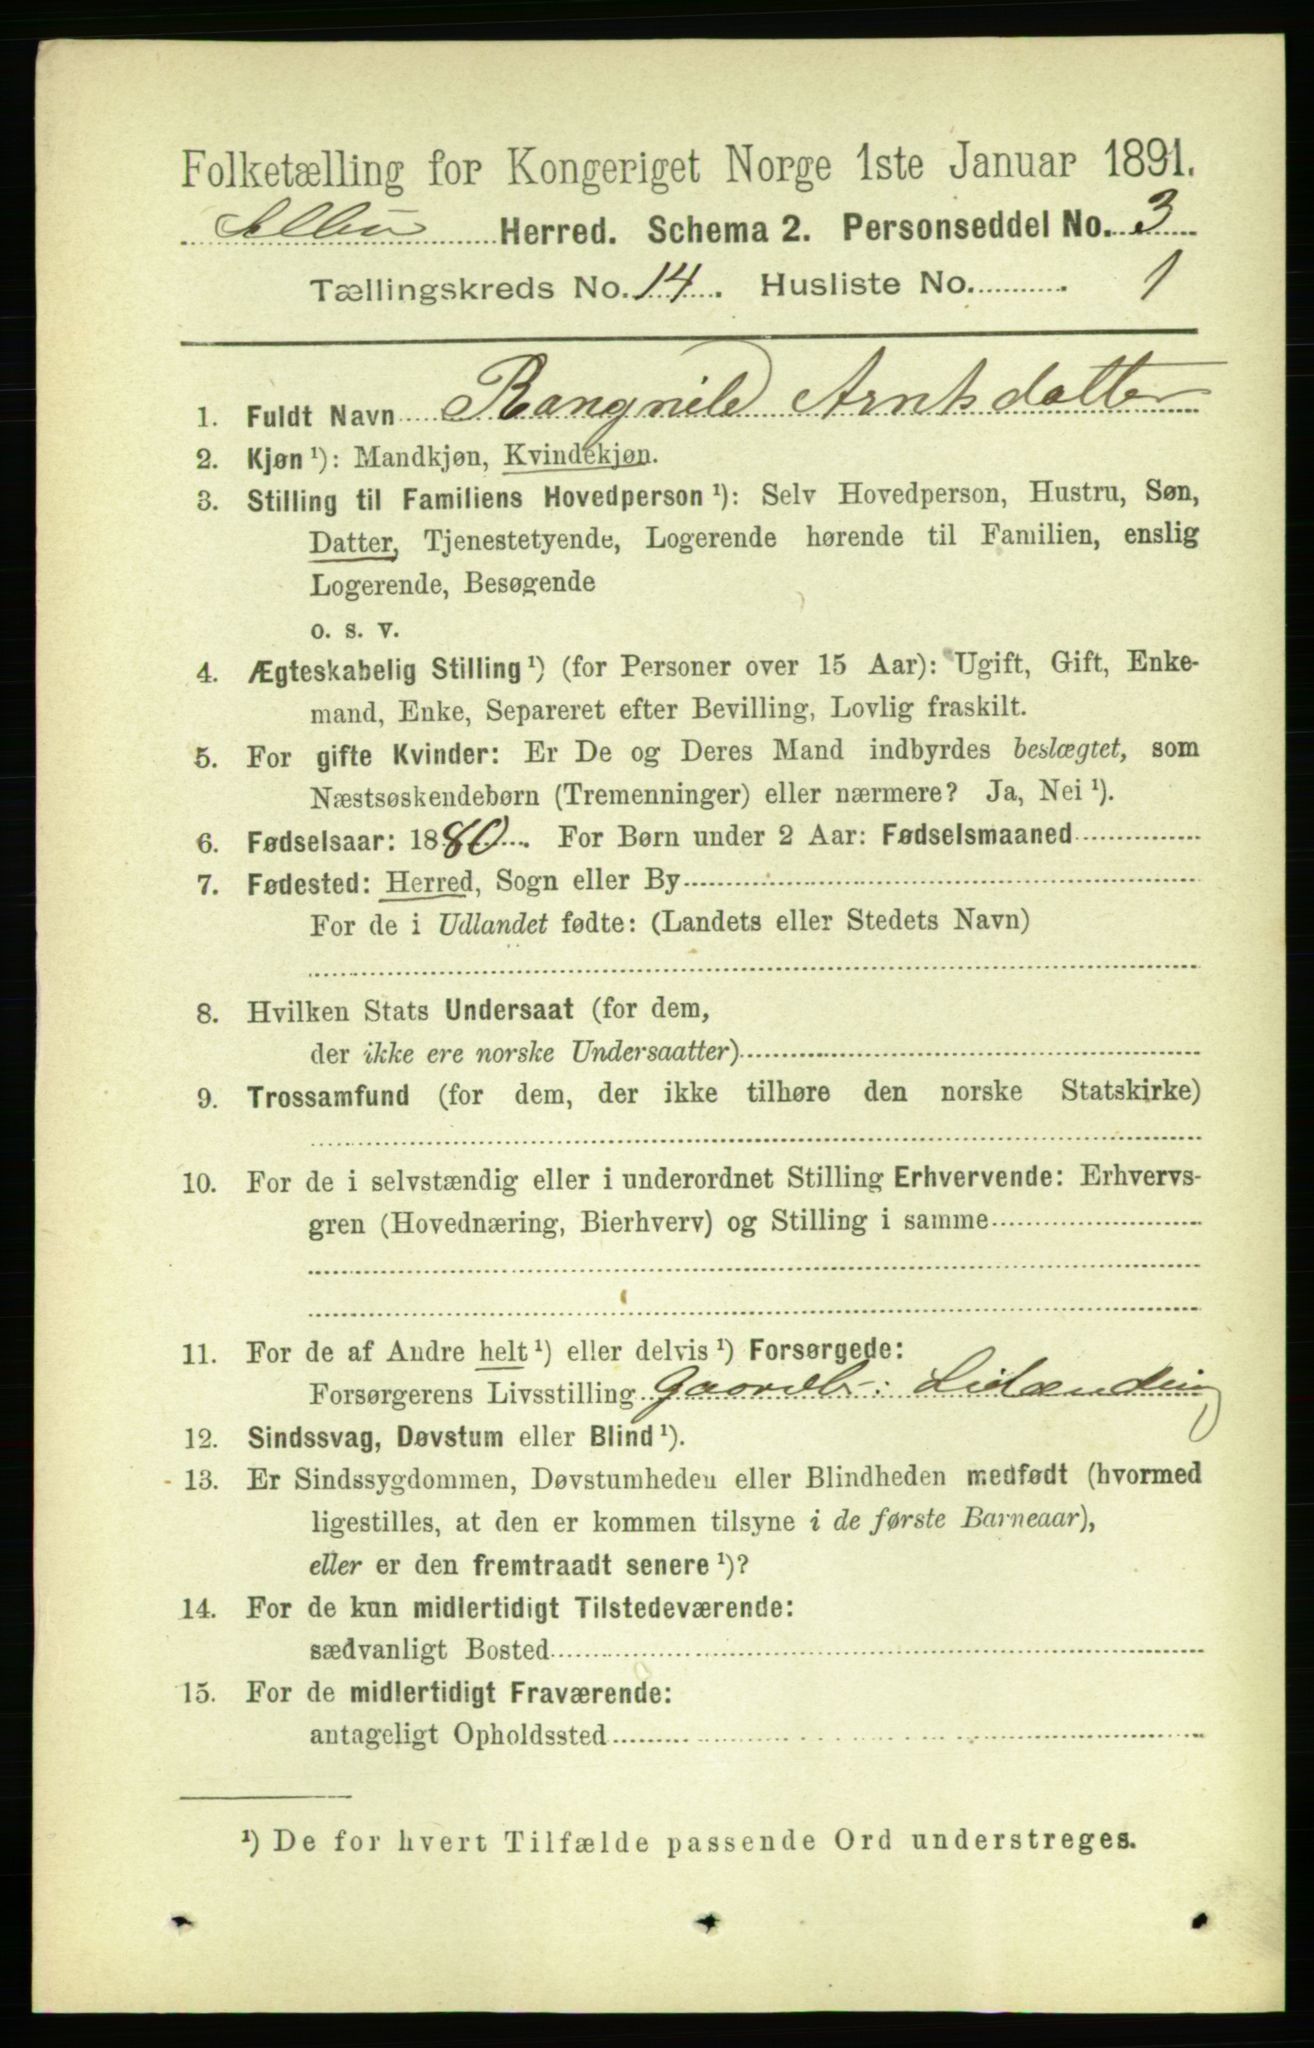 Folketælling for Kongeriget Norge 1ste Januar 1891.
Ålen Herred. Schema 2. Personseddel No. 3
Tællingskreds No. 14. Husliste No. 1
1. Fuldt Navn Rangnild Arntsdatter
2. Kjøn ¹): Mandkjøn, Kvindekjøn.
3. Stilling til Familiens Hovedperson ¹): Selv Hovedperson, Hustru, Søn,
Datter, Tjenestetyende, Logerende hørende til Familien, enslig
Logerende, Besøgende
o. s. v.
4. Ægteskabelig Stilling ¹) (for Personer over 15 Aar): Ugift, Gift, Enke-
mand, Enke, Separeret efter Bevilling, Lovlig fraskilt.
5. For gifte Kvinder: Er De og Deres Mand indbyrdes beslægtet, som
Næstsøskendebørn (Tremenninger) eller nærmere? Ja, Nei ¹).
6. Fødselsaar: 1880. For Børn under 2 Aar: Fødselsmaaned
7. Fødested: Herred, Sogn eller By
For de i Udlandet fødte: (Landets eller Stedets Navn)
8. Hvilken Stats Undersaat (for dem,
der ikke ere norske Undersaatter)
9. Trossamfund (for dem, der ikke tilhøre den norske Statskirke)
10. For de i selvstændig eller i underordnet Stilling Erhvervende: Erhvervs-
gren (Hovednæring, Bierhverv) og Stilling i samme
11. For de af Andre helt ¹) eller delvis ¹) Forsørgede:
Forsørgerens Livsstilling Gaardb.
12. Sindssvag, Døvstum eller Blind ¹).
13. Er Sindssygdommen, Døvstumheden eller Blindheden medfødt (hvormed
ligestilles, at den er kommen tilsyne i de første Barneaar),
eller er den fremtraadt senere ¹)?
14. For de kun midlertidigt Tilstedeværende:
sædvanligt Bosted
15. For de midlertidigt Fraværende:
antageligt Opholdssted
¹) De for hvert Tilfælde passende Ord understreges.